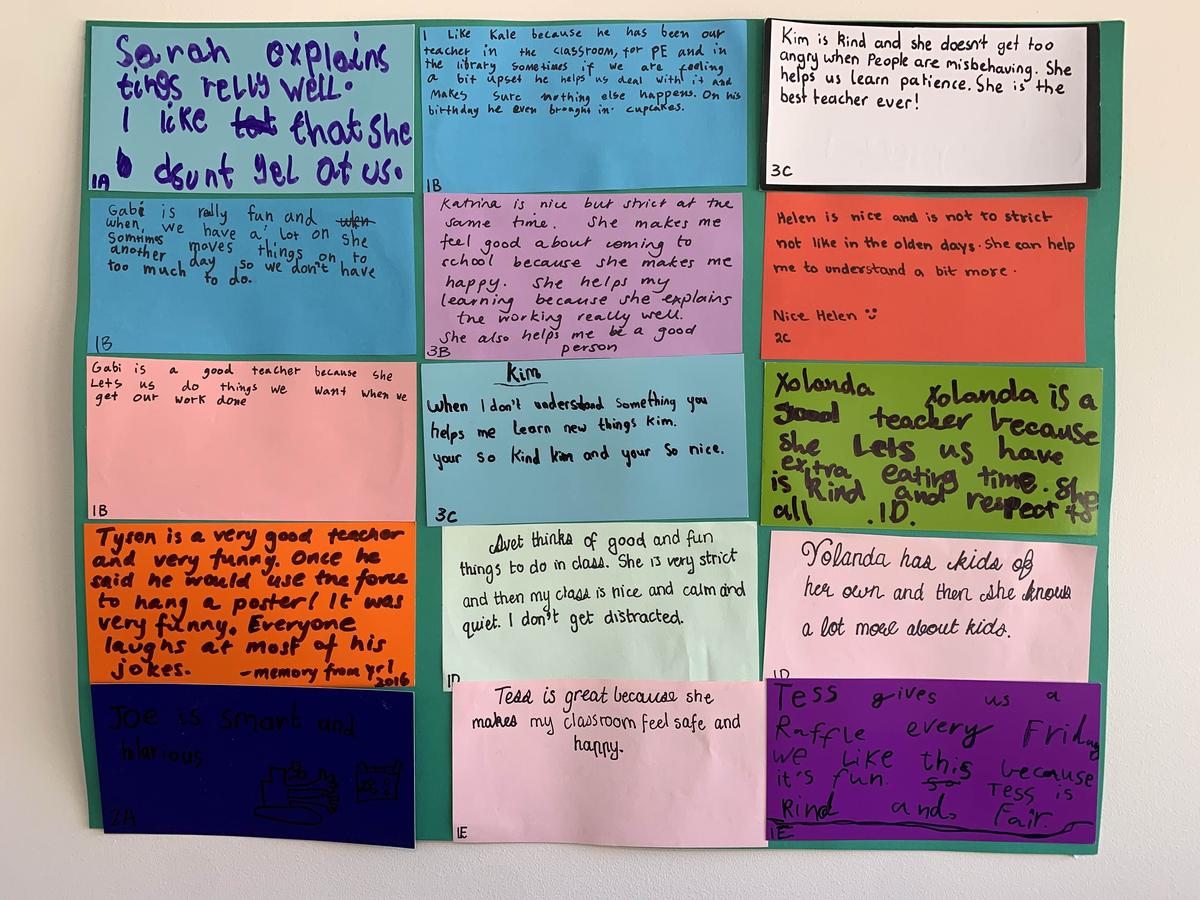 Sarah explains
tings relly well.
I like that she
dsunt yel at us.
1A
I Like Kale because he has been our
teacher in the classroom, for PE and in
the library sometimes if we are feeling
a bit upset he helps us deal with it and
makes sure nothing else happens. On his
birthday he even brought in cupcakes.
1B
Kim is kind and she doesn't get too
angry when People are misbehaving. She
helps us learn patience. She is the
best teacher ever!
3C
Gabi is relly fun and when
when, we have a lot on she
Somtimes moves things on to
another day so we don't have
too much to do.
1B
Katrina is nice but strict at the
same time. She makes me
feel good about coming to
school because she makes me
happy. She helps my
learning because she explains
the working really well.
She also helps me be a good
person
3B
Helen is nice and is not to strict
not like in the olden days. She can help
me to understand a bit more.
Nice Helen
2C
Gabi is a good teacher because she
Lets us do things we want when we
get our work done
1B
Kim
When I don't understand something you
helps me learn new things Kim.
your so kind kim and your so nice.
3C
Yolanda Yolanda is a
good teacher because
she Lets us have
extra eating time. She
is kind and respects
all .1D.
Tyson is a very good teacher
and very funny. Once he
said he would use the force
to hang a poster! It was
very funny. Everyone
laughs at most of his
jokes. -memory from yr1
2016
Svet thinks of good and fun
things to do in class. She is very strict
and then my class is nice and calm and
quiet. I don't get distracted.
1D
Yolanda has kids of
her own and then she knows
a lot more about kids.
1D
Joe is smart and
hilarious
2A
Tess is great because she
makes my classroom feel safe and
happy.
1E
Tess gives us a
Raffle every Friday
we Like this because
it's fun. so Tess is
kind and Fair.
1E